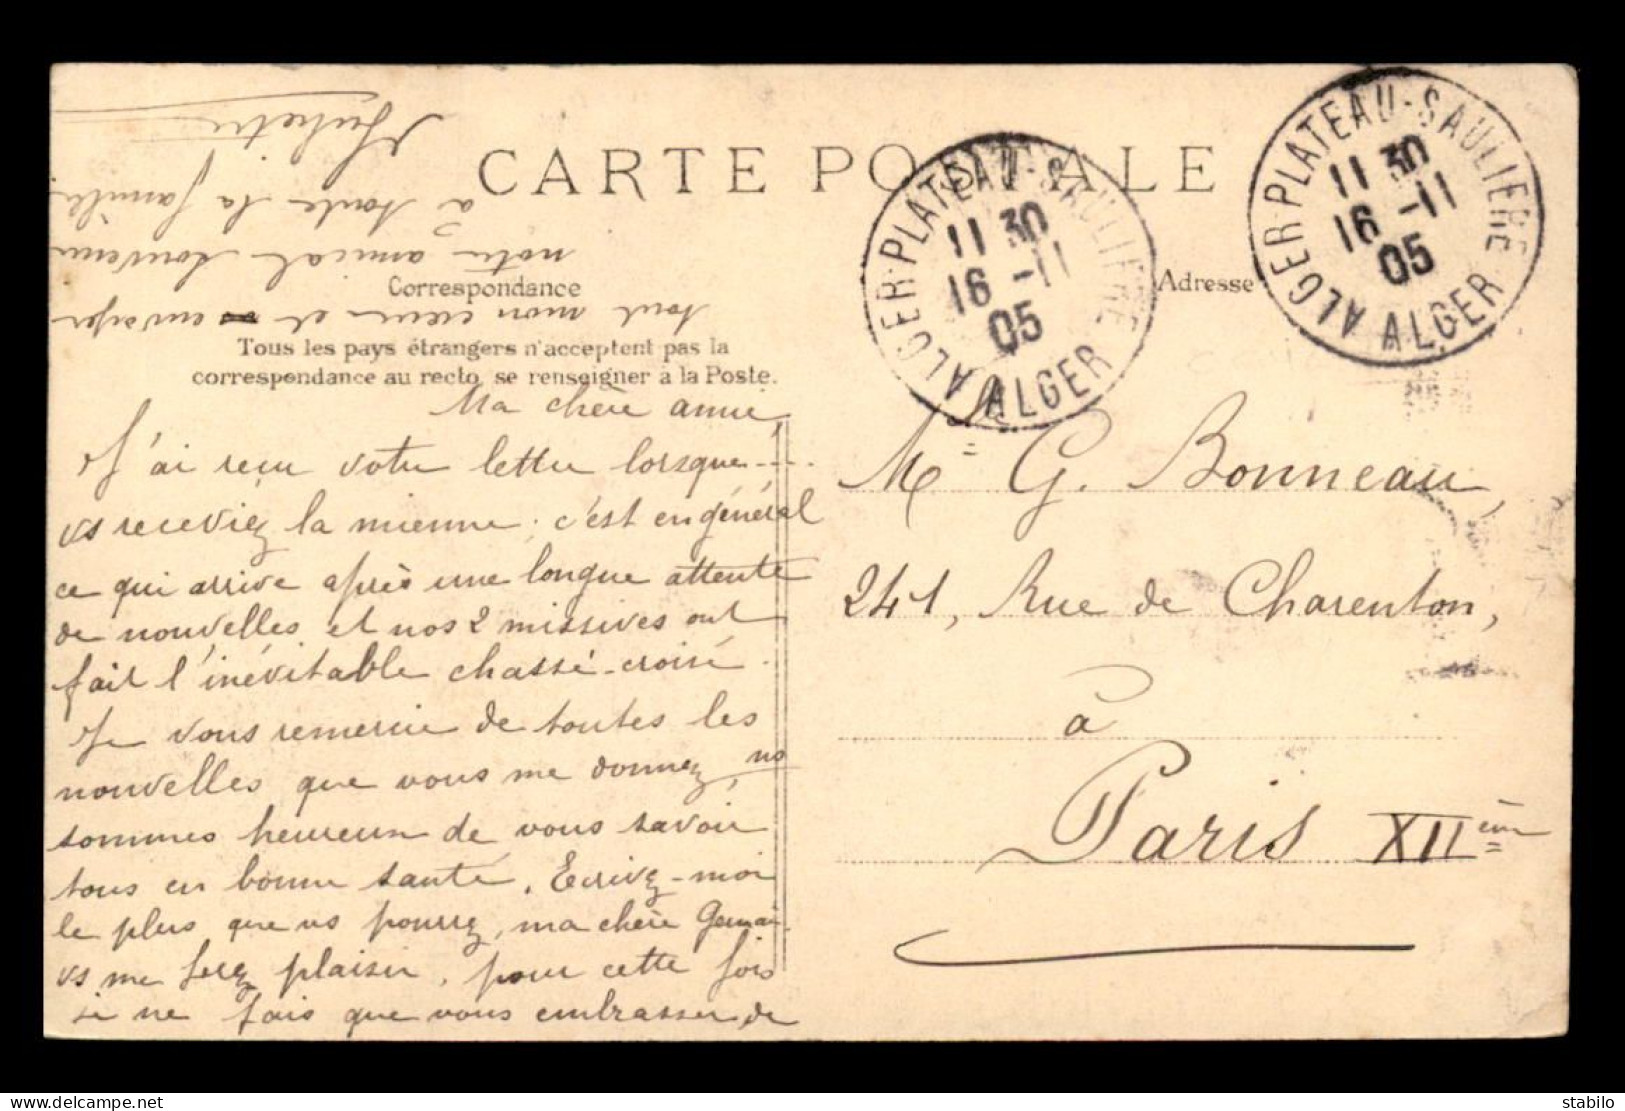 CARTE POSTALE
Correspondance
Adresse
Tous les pays étrangers n'acceptent pas la
correspondance au recto, se renseigner à la Poste.
ALGER-PLATEAU-SAULIERE
11 30
16 -11
05
ALGER
ALGER-PLATEAU-SAULIERE
11 30
16 -11
05
ALGER
Ma chère amie,
J'ai reçu votre lettre lorsque
vs receviez la mienne ; c'est en général
ce qui arrive après une longue attente
de nouvelles et nos 2 missives ont
fait l'inévitable chassé-croisé.
Je vous remercie de toutes les
nouvelles que vous me donnez, ns
sommes heureux de vous savoir
tous en bonne santé. Ecrivez-moi
le plus que vs pourrez, ma chère
vs me ferez plaisir, pour cette fois
je ne fais que vous embrasser de
tout mon cœur et envoyer
notre amical souvenir
à toute la famille
Juliette
Me G. Bonneau,
241, Rue de Charenton,
à
Paris XIIème